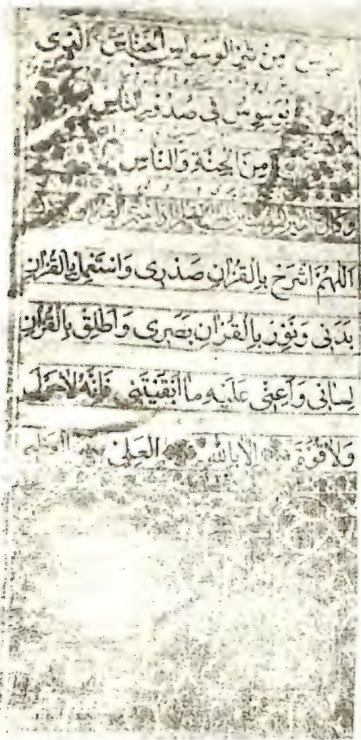 مِنْ شَرِّ الوَسْوَاسِ الْخَنَّاسِ الَّذِى
يُوَسْوِسُ فِى صُدُورِ النَّاسِ
مِنَ الْجِنَّةِ وَالنَّاسِ
وكان
اَللّٰهُمَّ اشْرَحْ بِالْقُرْاٰنِ صَدْرِى وَاسْتَعْمِلْ بِالْقُرْاٰنِ
بَدَنِى وَنَوِّرْ بِالْقُرْاٰنِ بَصَرِى وَاَطْلِقْ بِالْقُرْاٰنِ
لِسَانِى وَاَعِنِّى عَلَيْهِ مَا اَبْقَيْتَنِى فَاِنَّهُ لَاحَوْلَ
وَلَاقُوَّةَ اِلَّا بِاللّٰهِ الْعَلِىِّ